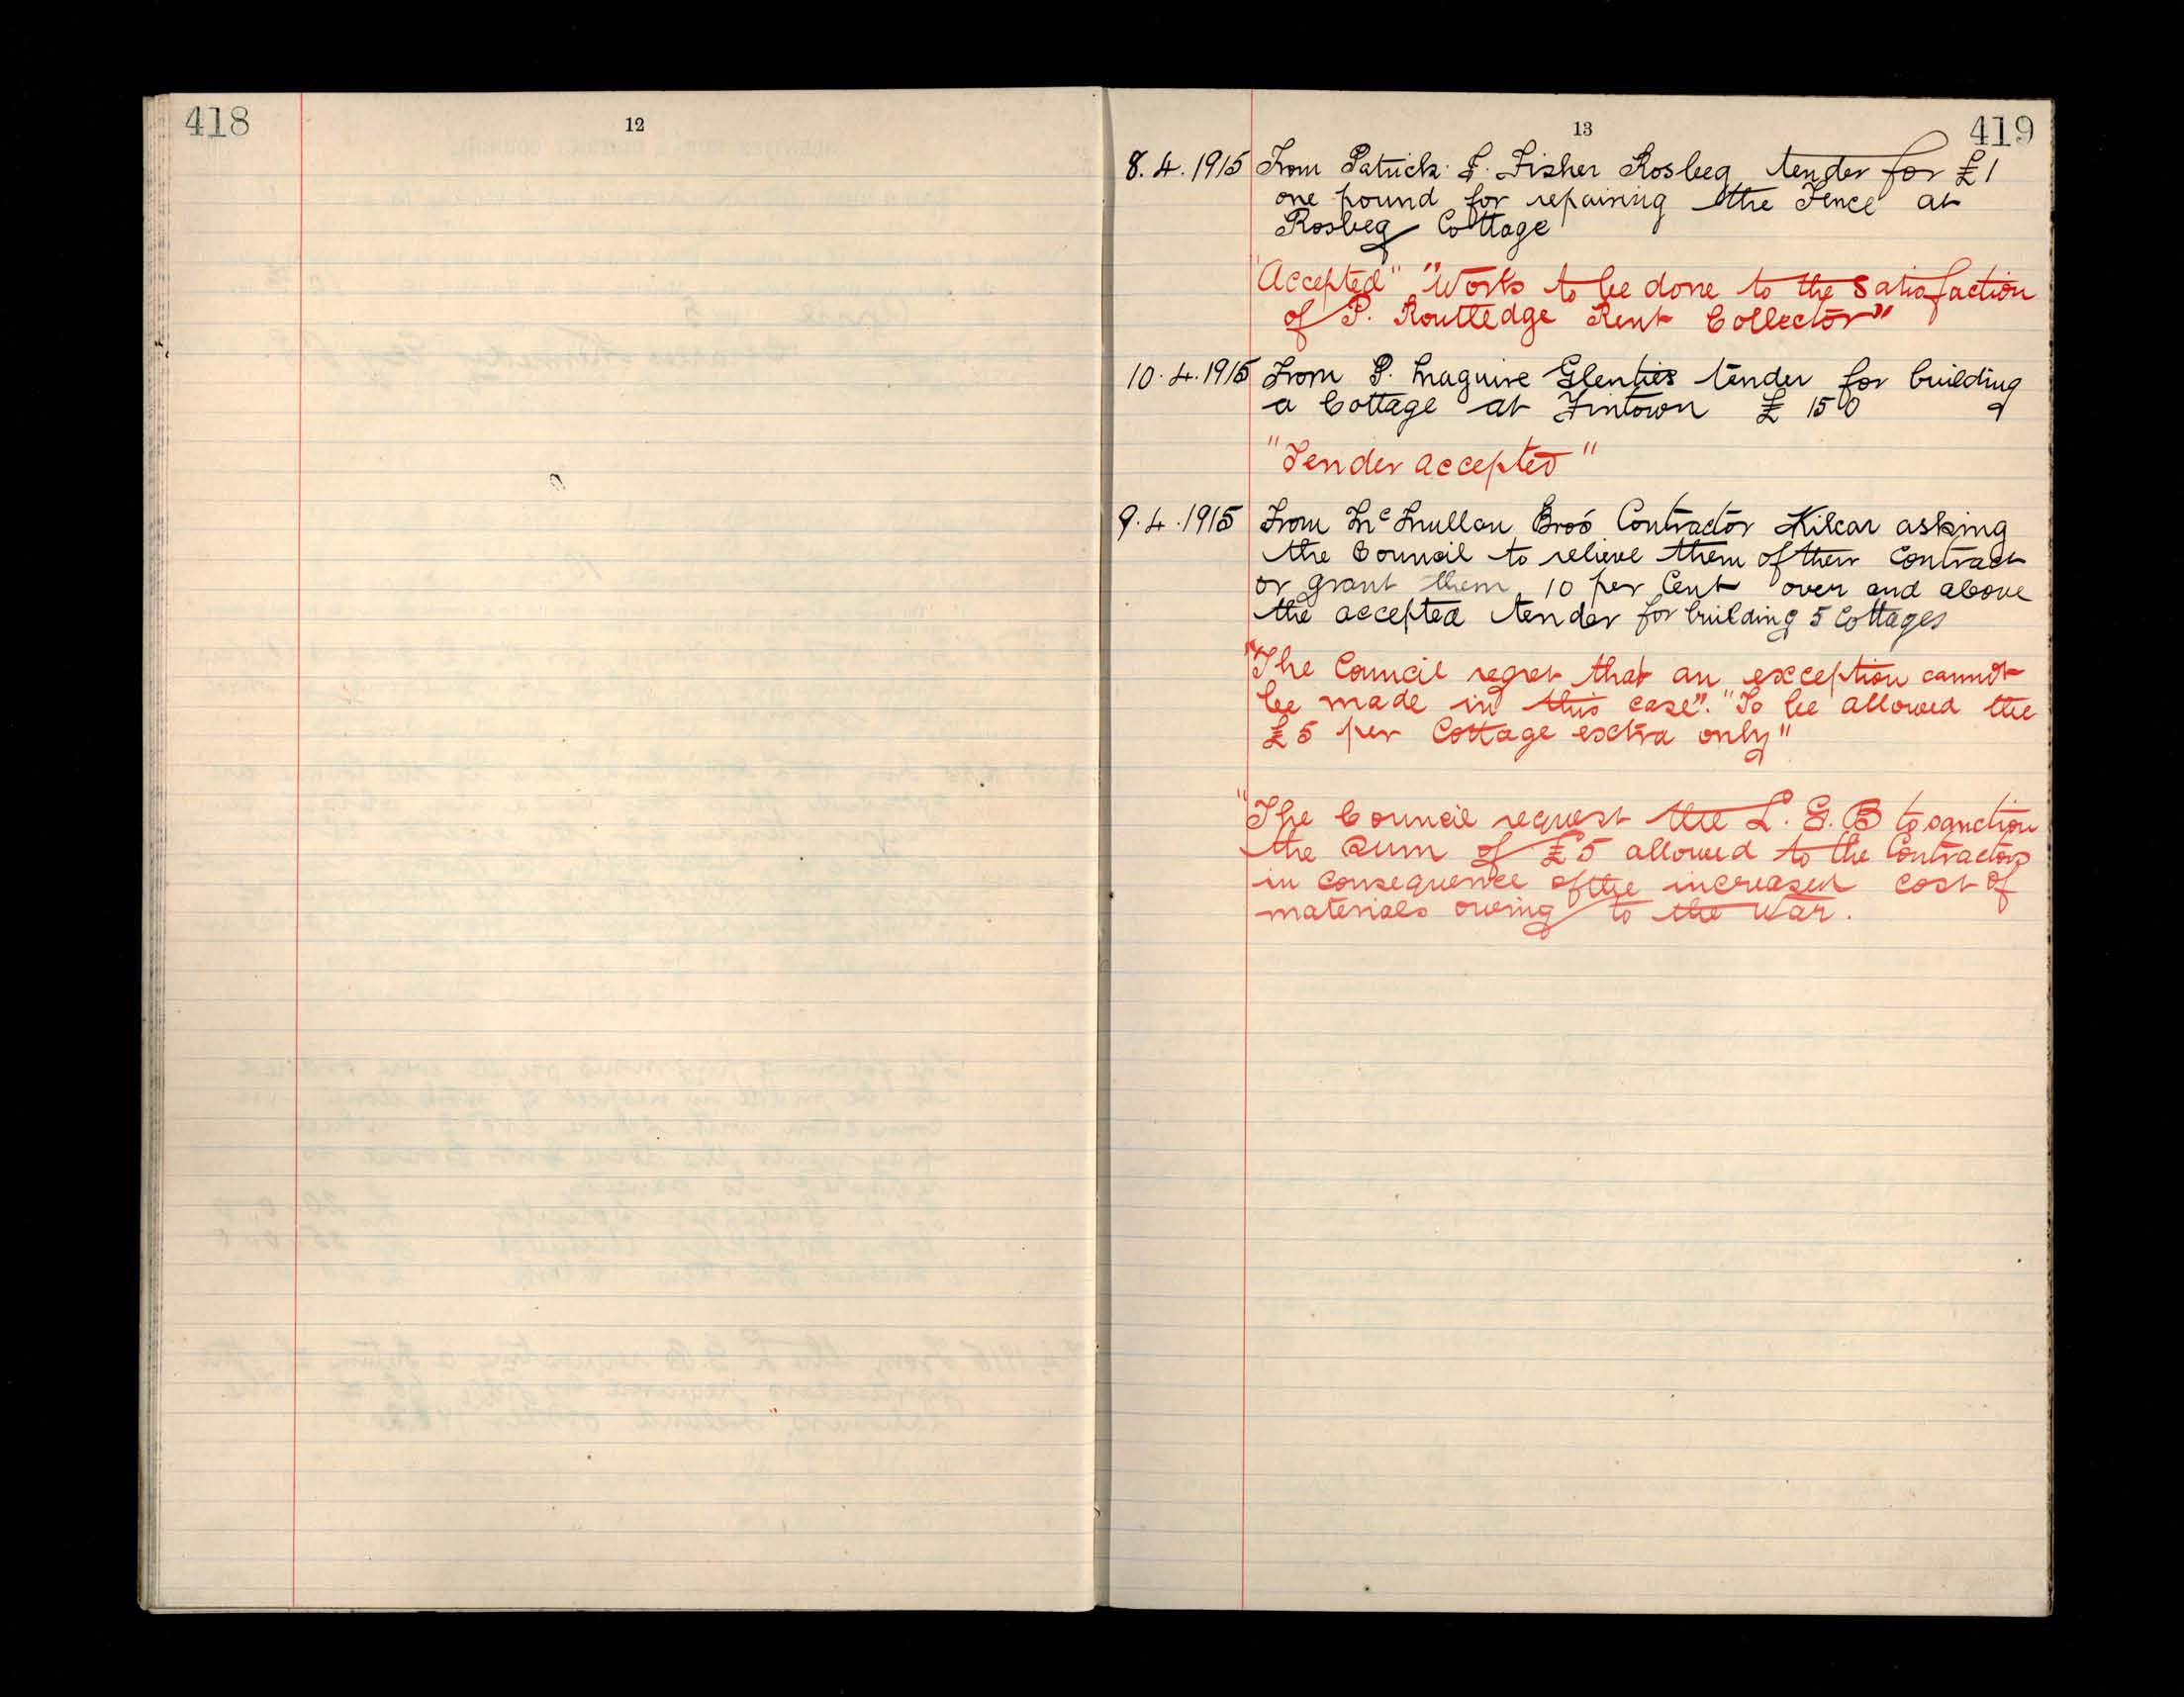 418
12
13
419
8.4.1915 From Patrick F. Fisher Rosbeg tender for £1
one pound for repairing the Fence at
Rosbeg Cottage
"Accepted" "Works to be done to the satisfaction
of P. Routledge Rent Collector"
10.4.1915 From P. Maguire Glenties tender for building
a Cottage at Fintown £150
"Tender accepted"
9.4.1915 From McMullan Bros Contractor Kilcar asking
the Council to relieve them of their Contract
or grant them 10 per Cent over and above
the accepted tender for building 5 Cottages
"The Council regret that an exception cannot
be made in this case". "To be allowed the
£5 per Cottage extra only"
"The Council request the L.G.B to sanction
the Sum of £5 allowed to the Contractors
in consequence of the increased cost of
materials owing to the War.